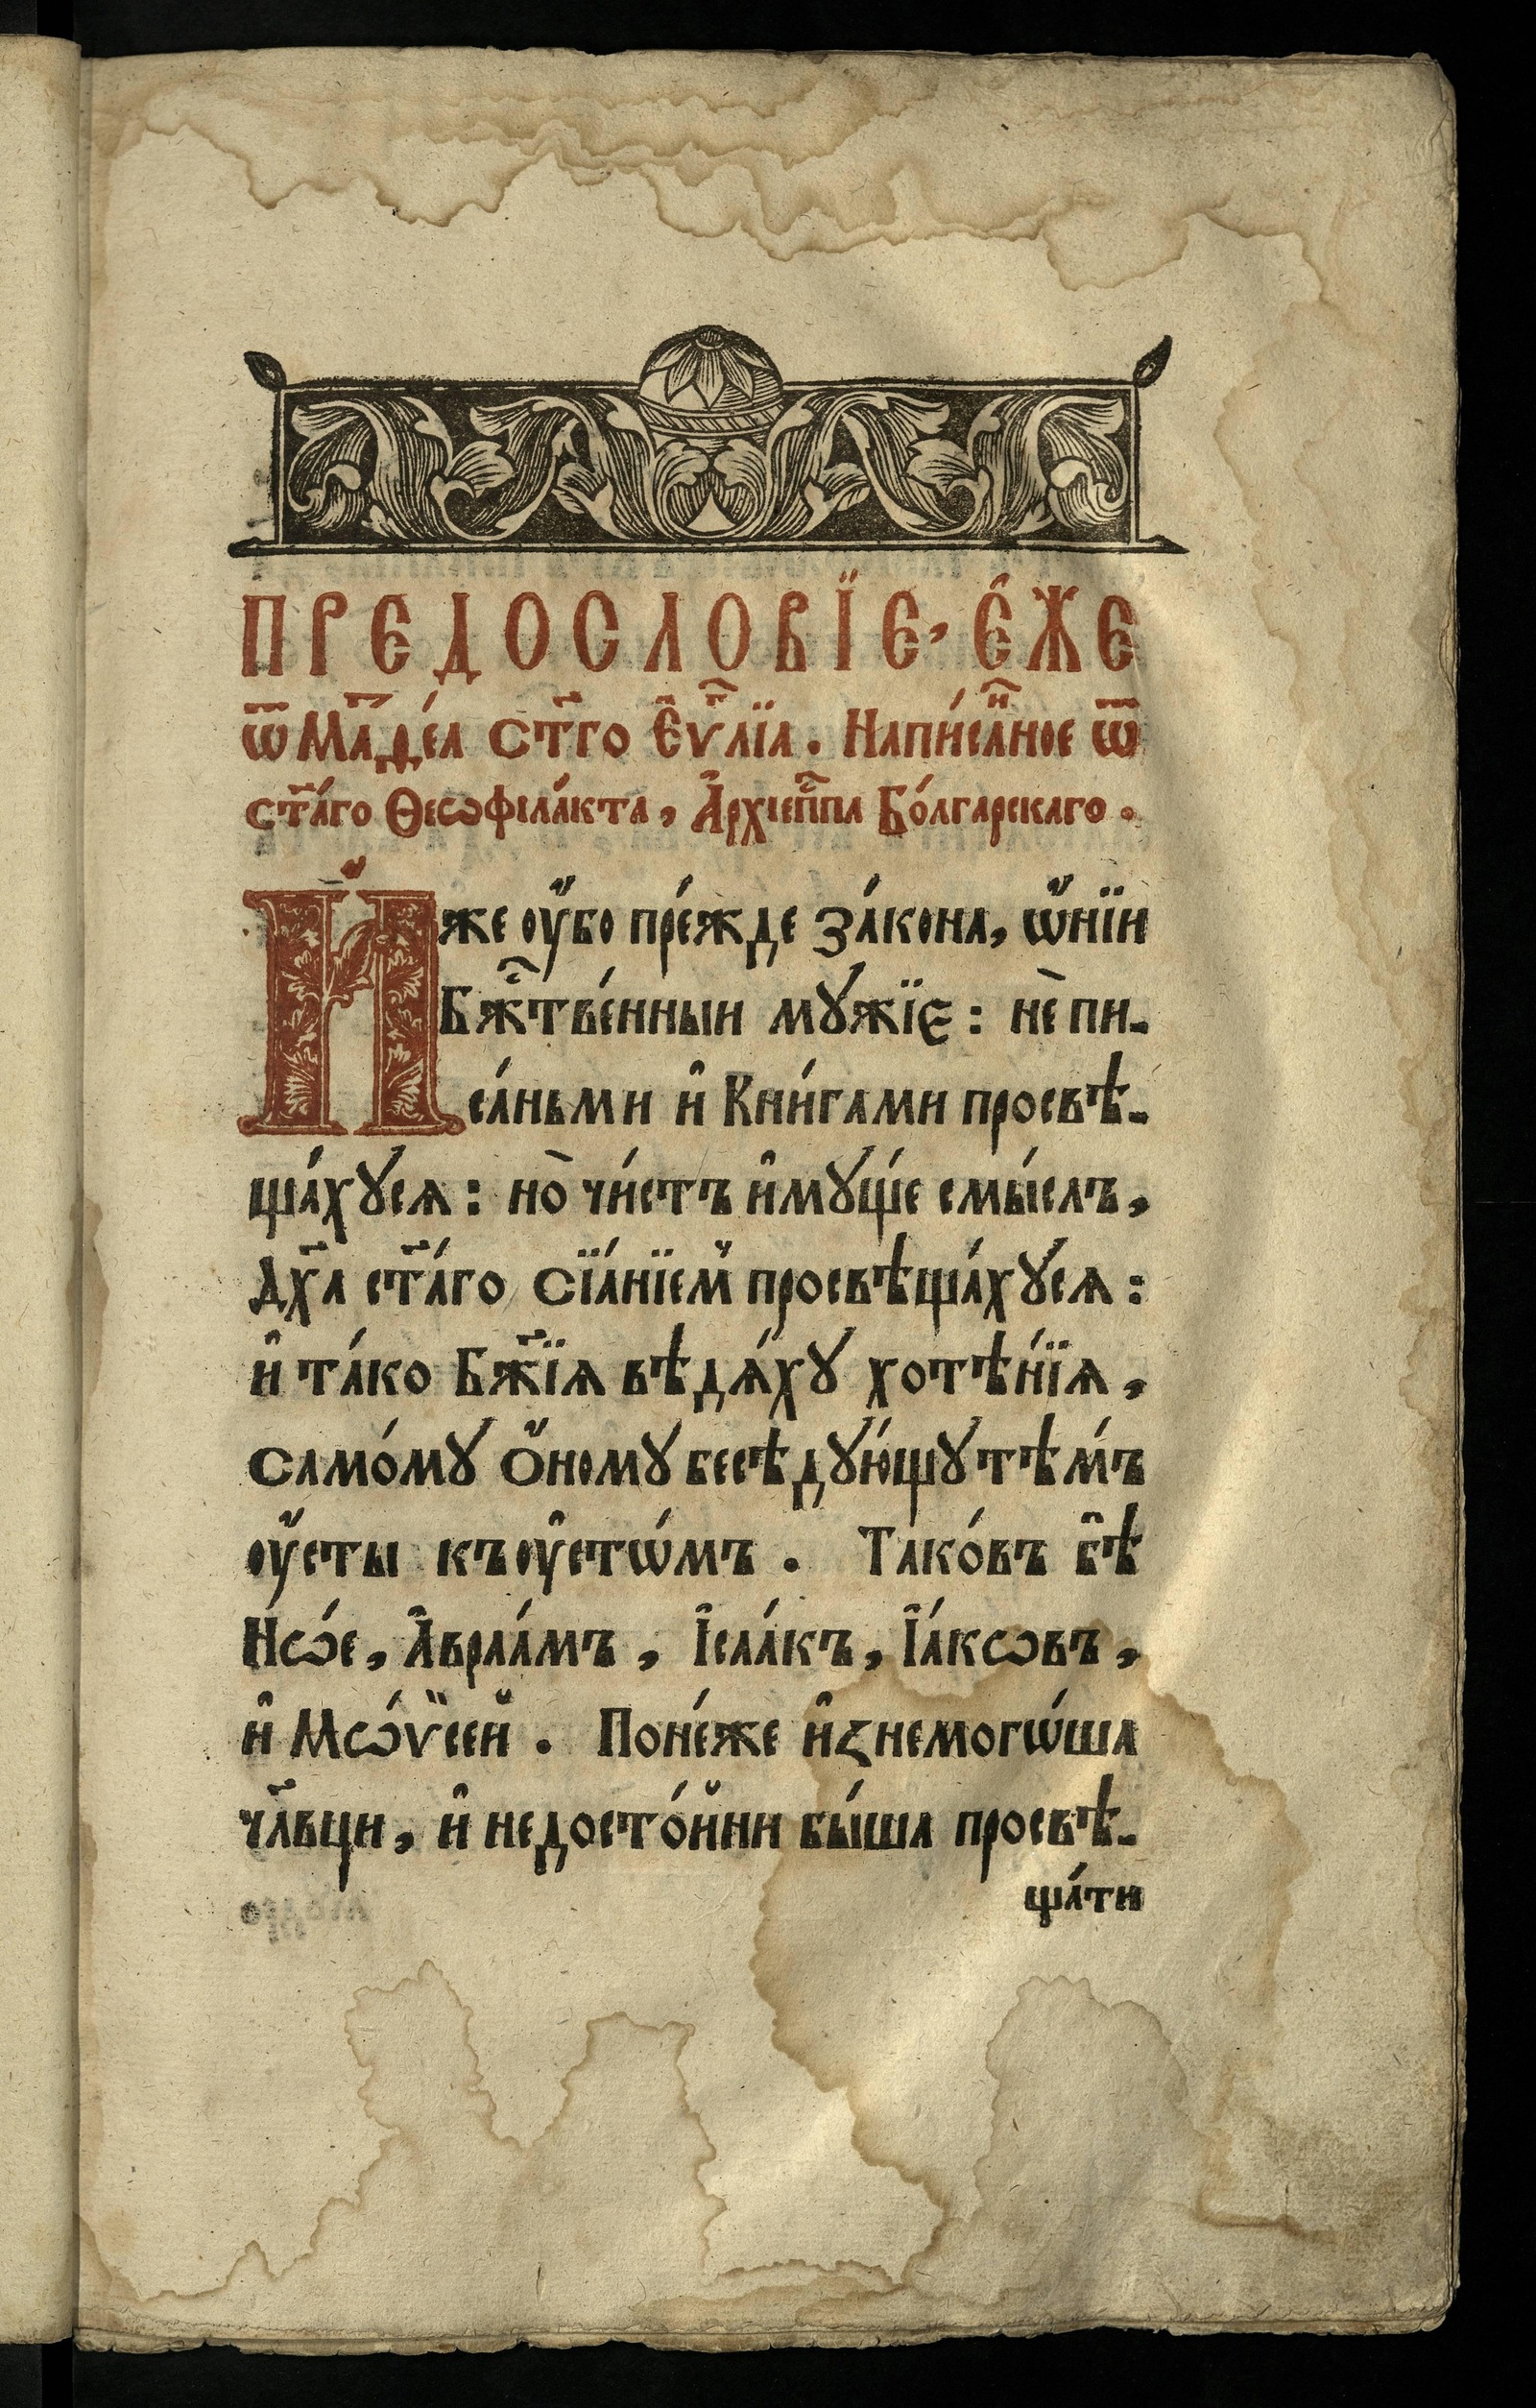 ПРЕДОСЛОВЇЕ, Е҆́ЖЕ
ѿ Маⷮѳе́а ст҃го Е҆ѵⷢ҇лїа. Напи́саⷩ҇ное ѿ
ст҃а́го Ѳеѡфіла́кта, А҆рхіепⷭ҇па Бо́лгарскаго.
И҆́же оу҆́бо пре́жде за́кона, ѡ҆́нїи
Бжⷭ҇тве́нныи мꙋжїе: нѐ пи-
са́ньми и҆ Кни́гами просвѣ-
ща́хꙋсѧ: но̀ чи́стъ и҆мꙋ́ще смы́слъ,
Дх҃а ст҃а́го сїѧ́нїемъ просвѣща́хꙋсѧ:
и҆ та́ко Бж҃їѧ вѣдѧ́хꙋ хотѣ́нїѧ,
само́мꙋ Ѻ҆́номꙋ бесѣдꙋ́ющꙋ тѣ́мъ
оу҆́сты къ оу҆стѡ́мъ. Тако́въ бѣ̑
Нѡ́е, А҆враа́мъ, І҆саа́къ, І҆а́кѡвъ,
и҆ Мѡѵ̈се́й. Поне́же и҆знемогѡ́ша
чл҃вцы, и҆ недосто́йни бы́ша просвѣ-
ща́ти